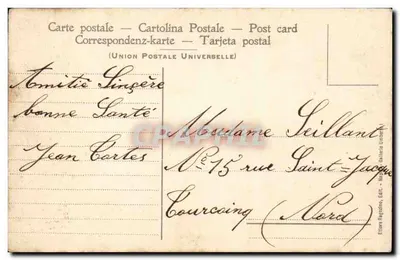 Carte postale — Cartolina Postale — Post card
Correspondenz-karte — Tarjeta postal
(UNION POSTALE UNIVERSELLE)
Amitié Sincère
bonne Santé
Jean Cortes
Madame Seillant
Nº 15 rue Saint=Jacque
Tourcoing (Nord)